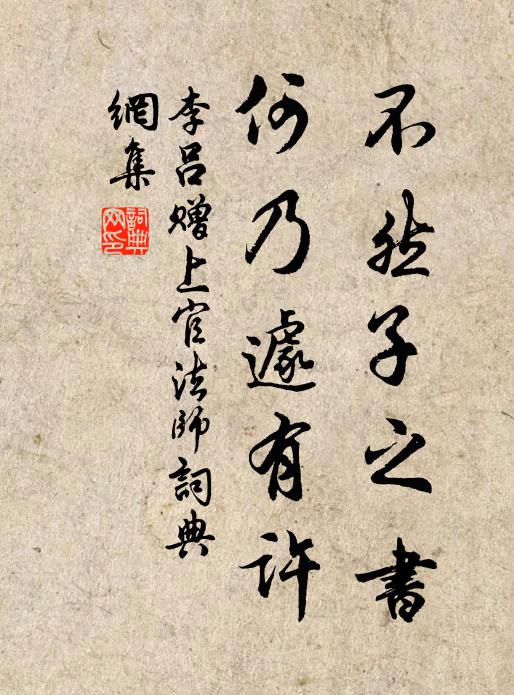 不然子之書
何乃遽有許
李呂贈上官法師詞典
網集
詞典
网印